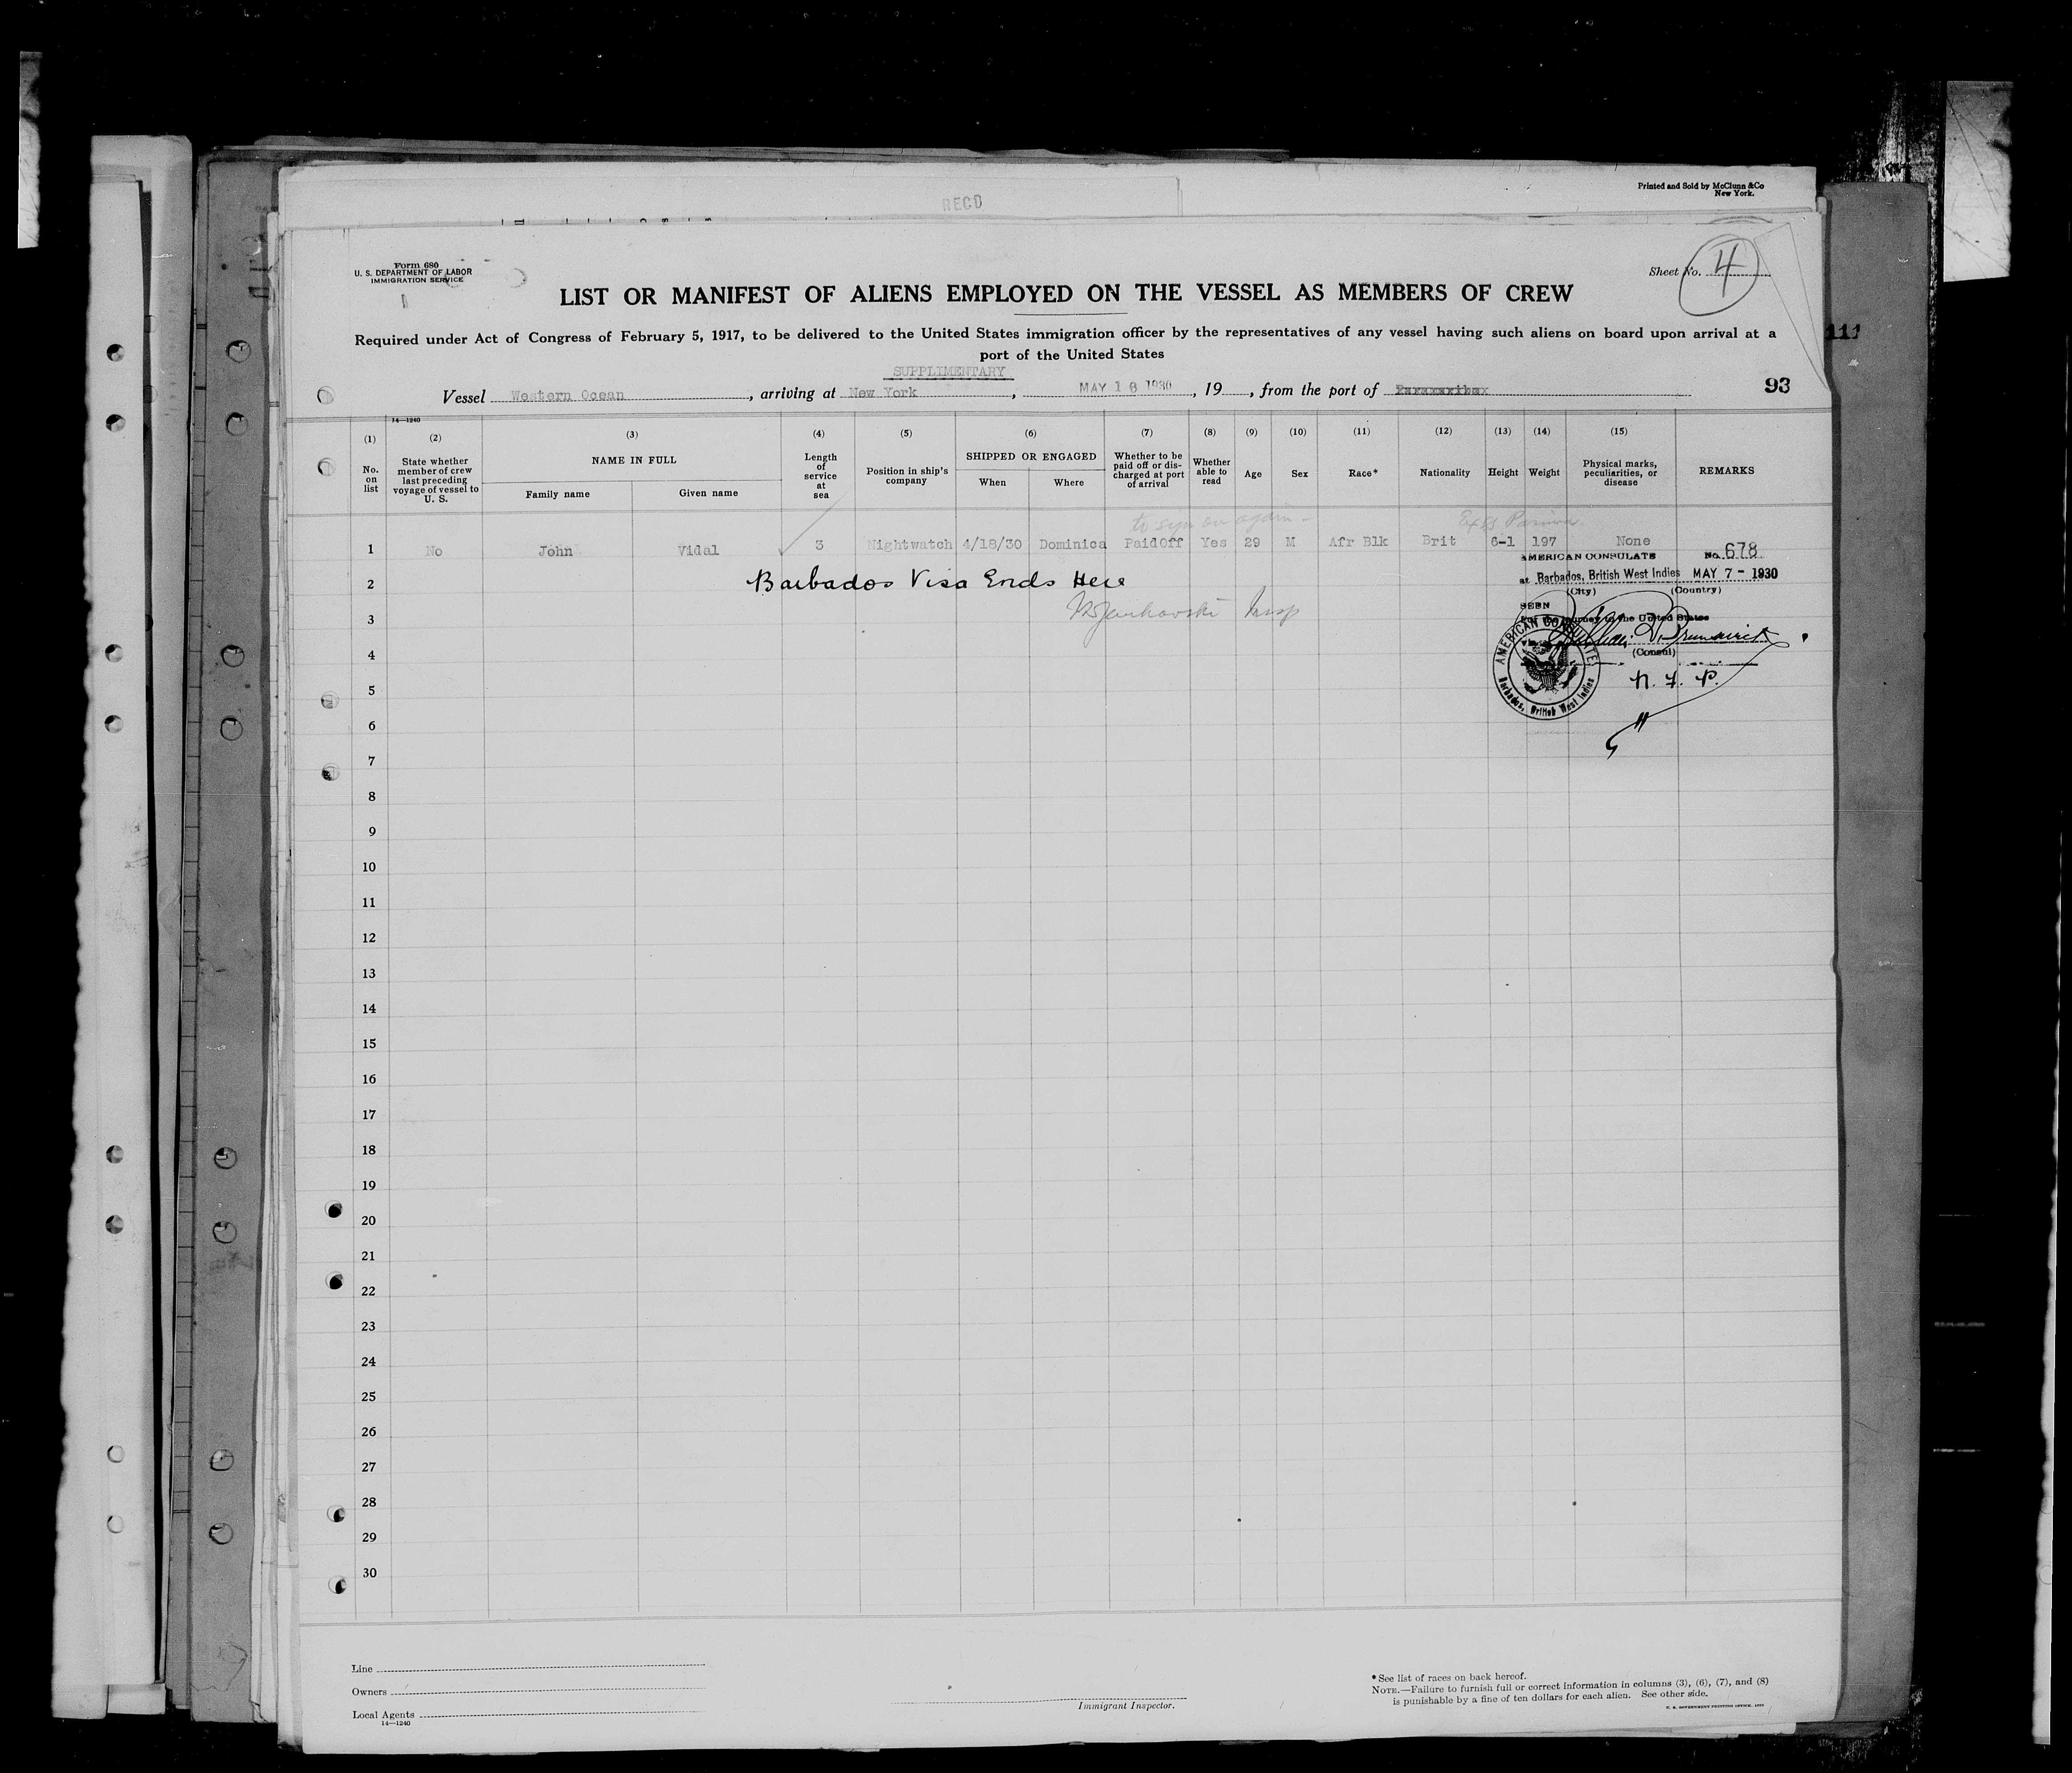 Printed and Sold by McClunn & Co
New York.
RECD
Form 680
U. S. DEPARTMENT OF LABOR
IMMIGRATION SERVICE
Sheet No. 4
LIST OR MANIFEST OF ALIENS EMPLOYED ON THE VESSEL AS MEMBERS OF CREW
Required under Act of Congress of February 5, 1917, to be delivered to the United States immigration officer by the representatives of any vessel having such aliens on board upon arrival at a
port of the United States
111
SUPPLIMENTARY
Vessel Western Ocean, arriving at New York, MAY 16 1930, 19, from the port of
93
14—1240
(1) (2) (3) (4) (5) (6) (7) (8) (9) (10) (11) (12) (13) (14) (15)
No. on list
State whether member of crew last preceding voyage of vessel to U. S.
NAME IN FULL
Family name
Given name
Length of service at sea
Position in ship's company
SHIPPED OR ENGAGED
When
Where
Whether to be paid off or discharged at port of arrival
Whether able to read
Age
Sex
Race*
Nationality
Height
Weight
Physical marks, peculiarities, or disease
REMARKS
to sign on again -
1 No John Vidal 3 Nightwatch 4/18/30 Dominica Paidoff Yes 29 M Afr Blk Brit 6-1 197 None
AMERICAN CONSULATE No. 678
at Barbados, British West Indies MAY 7 - 1930
(City) (Country)
2 Barbados Visa Ends Here
SEEN
3 Insp
For the journey to the United States
(Consul)
AMERICAN CONSULATE
Barbados, British West Indies
4
N. F. P.
5
6
7
8
9
10
11
12
13
14
15
16
17
18
19
20
21
22
23
24
25
26
27
28
29
30
Line
Owners
Local Agents
14—1240
Immigrant Inspector.
* See list of races on back hereof.
NOTE.—Failure to furnish full or correct information in columns (3), (6), (7), and (8)
is punishable by a fine of ten dollars for each alien. See other side.